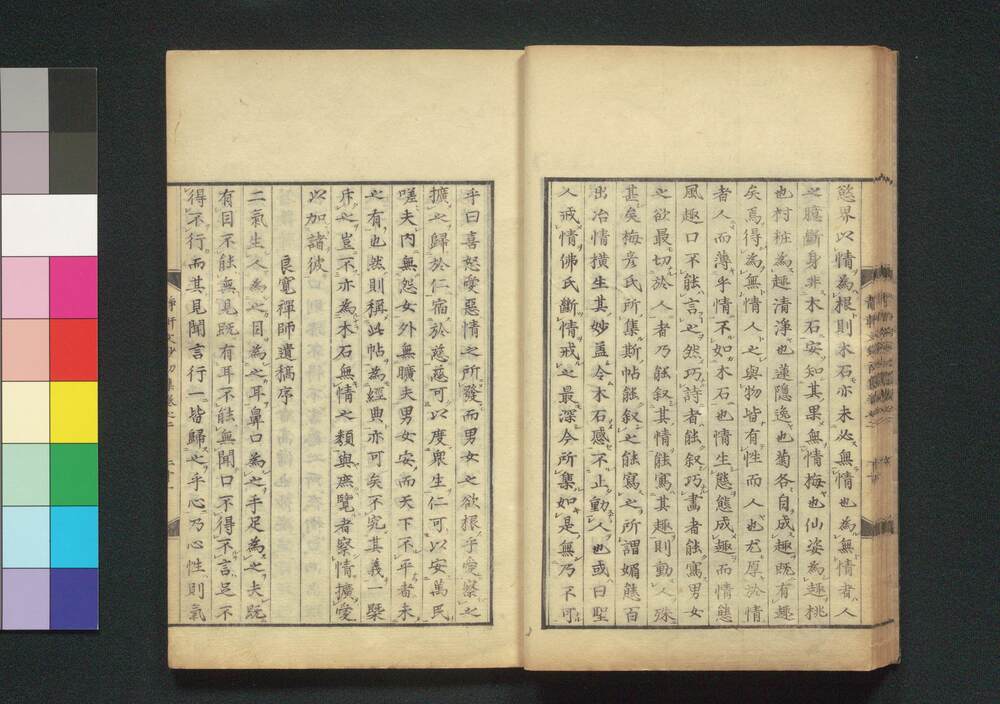 慾界以情為根則木石亦未必無情也為無情者人
之臆斷身非木石安知其果無情梅也仙姿為趣桃
也村粧為趣清淨也蓮隱逸也菊各自成趣既有趣
矣焉得為無情人之與物皆有性而人也尤厚於情
者人而薄乎情不如木石也情生態態成趣而情態
風趣口不能言之然巧詩者能叙巧畫者能寫男女
之欲最切於人者乃能叙其情能寫其趣則動人殊
甚矣梅彥氏所集斯帖能叙之能寫之所謂媚態百
出冶情橫生其妙蓋令木石感不止動人也或曰聖
人戒情佛氏斷情戒之最深今所集如是無乃不可
乎曰喜怒愛惡情之所發而男女之欲根乎愛察之
擴之歸於仁宿於慈慈可以度衆生仁可以安萬民
嗟夫內無怨女外無曠夫男女安而天下不平者未
之有也然則稱此帖為經典亦可矣不究其義一槩
斥之豈不亦為木石無情之類與庶覽者察情擴愛
以加諸彼
良寬禪師遺稿序
二氣生人為之目為之耳鼻口為之手足為之夫既
有目不能無見既有耳不能無聞口不得不言足不
得不行而其見聞言行一皆歸之乎心乃心性則氣